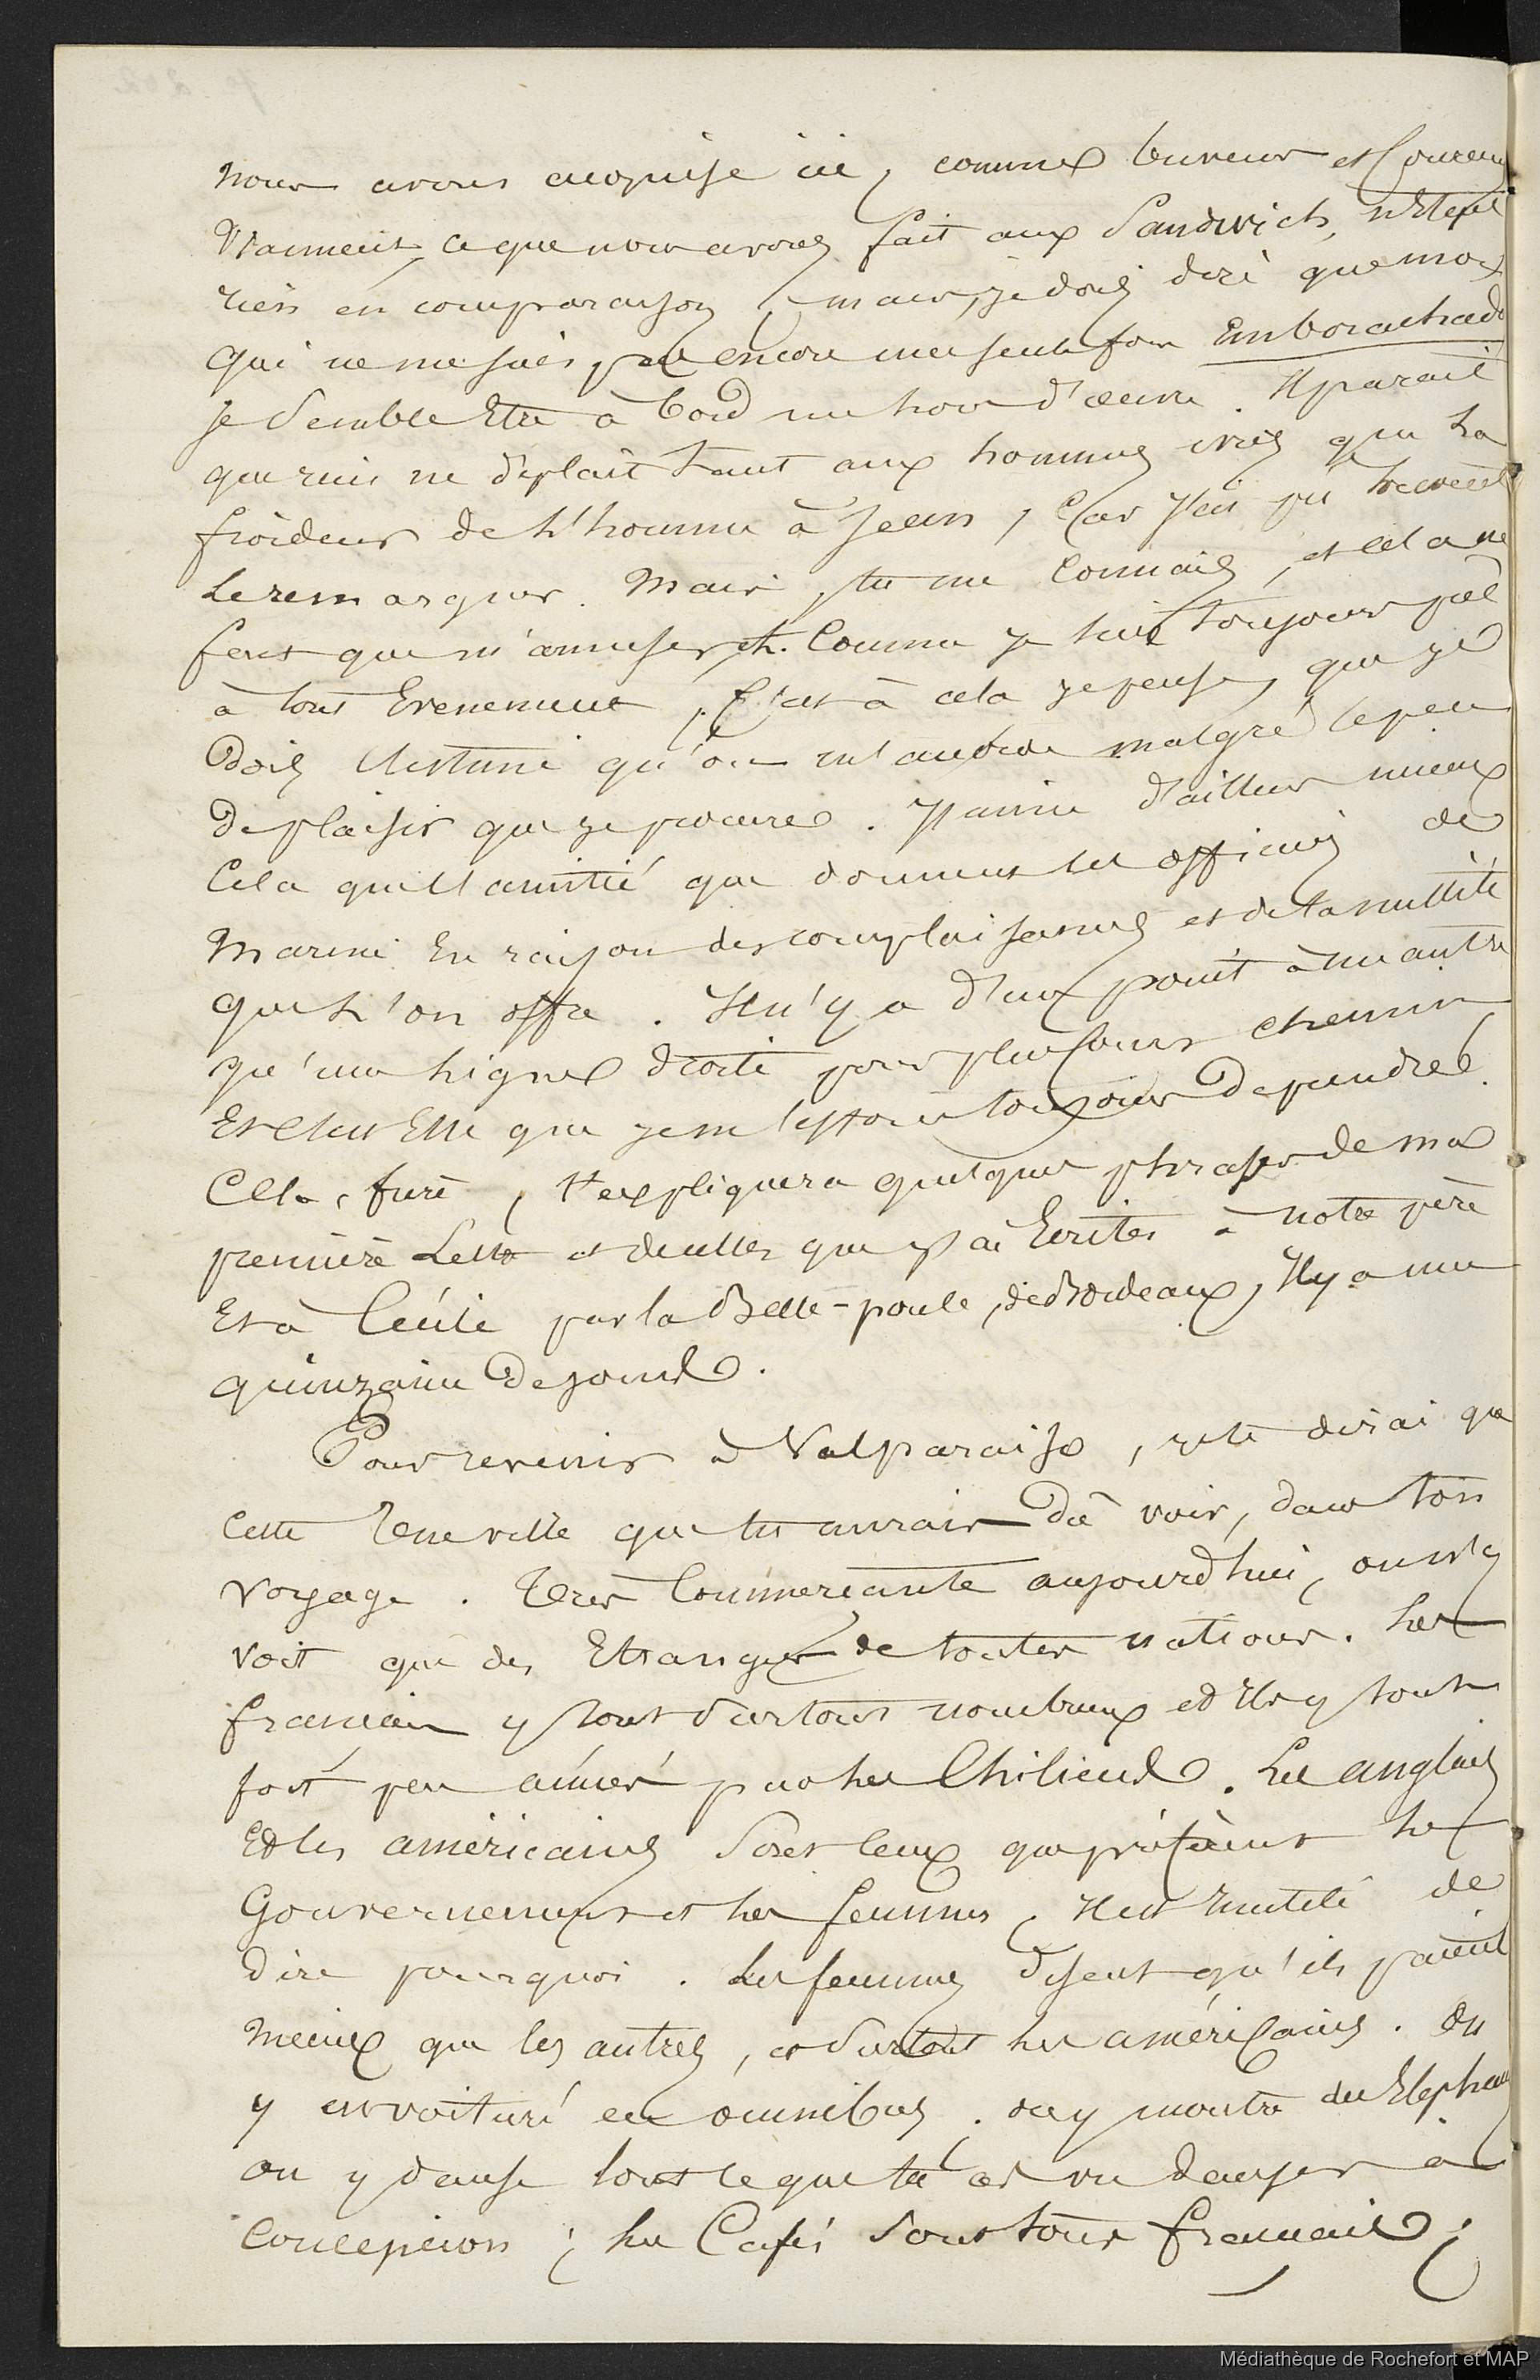 nous avons acquise ici, comme buveurs et coureurs
Vraiment, ce que nous avons fait aux Sandwich, n'Etait
rien en comparaison, mais, je dois dire que moi
qui ne me suis pas encore une seule fois Emborachado
je Semble Etre à bord un hors d'œuvre. Il parait
que rien ne déplait tant aux hommes ivres que La
froideur de L'homme à jeun, Car j'ai pu
Le remarquer. Mais, tu me Connais, et cela ne
fait que m'amuser. Comme je suis toujours prêt
à tout Evenement, C'est à cela je pense, que je
Dois l'Estime qu'on m'accorde malgré le peu
De plaisir que je procure. J'aime d'ailleurs mieux
Cela que L'amitié que donnent les officiers de
Marine En raison des complaisances et de la nullité
que L'on offre. Il n'y a d'un point à un autre
qu'une Ligne Droite pour plusieurs chemins,
Et c'est Elle que je m'efforce toujours De prendre.
Cela, furé, t'expliquera quelques phrases de ma
première Lettre et de celles que j'ai Ecrites à notre père
Et à Cécile par la Belle-poule, de Bordeaux, Il y a une
quinzaine De jours.
Pour revenir à Valparaiso, je te dirai que
cette Ville que tu aurais Dû voir, dans ton
voyage. Très Commerçante aujourd'hui, on n'y
voit que des Etrangers de toutes nations. Les
français y sont surtout nombreux et Ils y sont
fort peu aimés par les Chiliens. Les anglais
Et les américains Sont Ceux que préfèrent les
Gouvernements et les femmes, Il est Inutile de
dire pourquoi. Les femmes disent qu'ils paient
mieux que les autres, et Surtout les américains. On
y est voituré en omnibus, on y montre des Elephans
on y danse tout ce que tu as vu danser à
Concepcion; Les Cafés Sont tous français;
Médiathèque de Rochefort et MAP